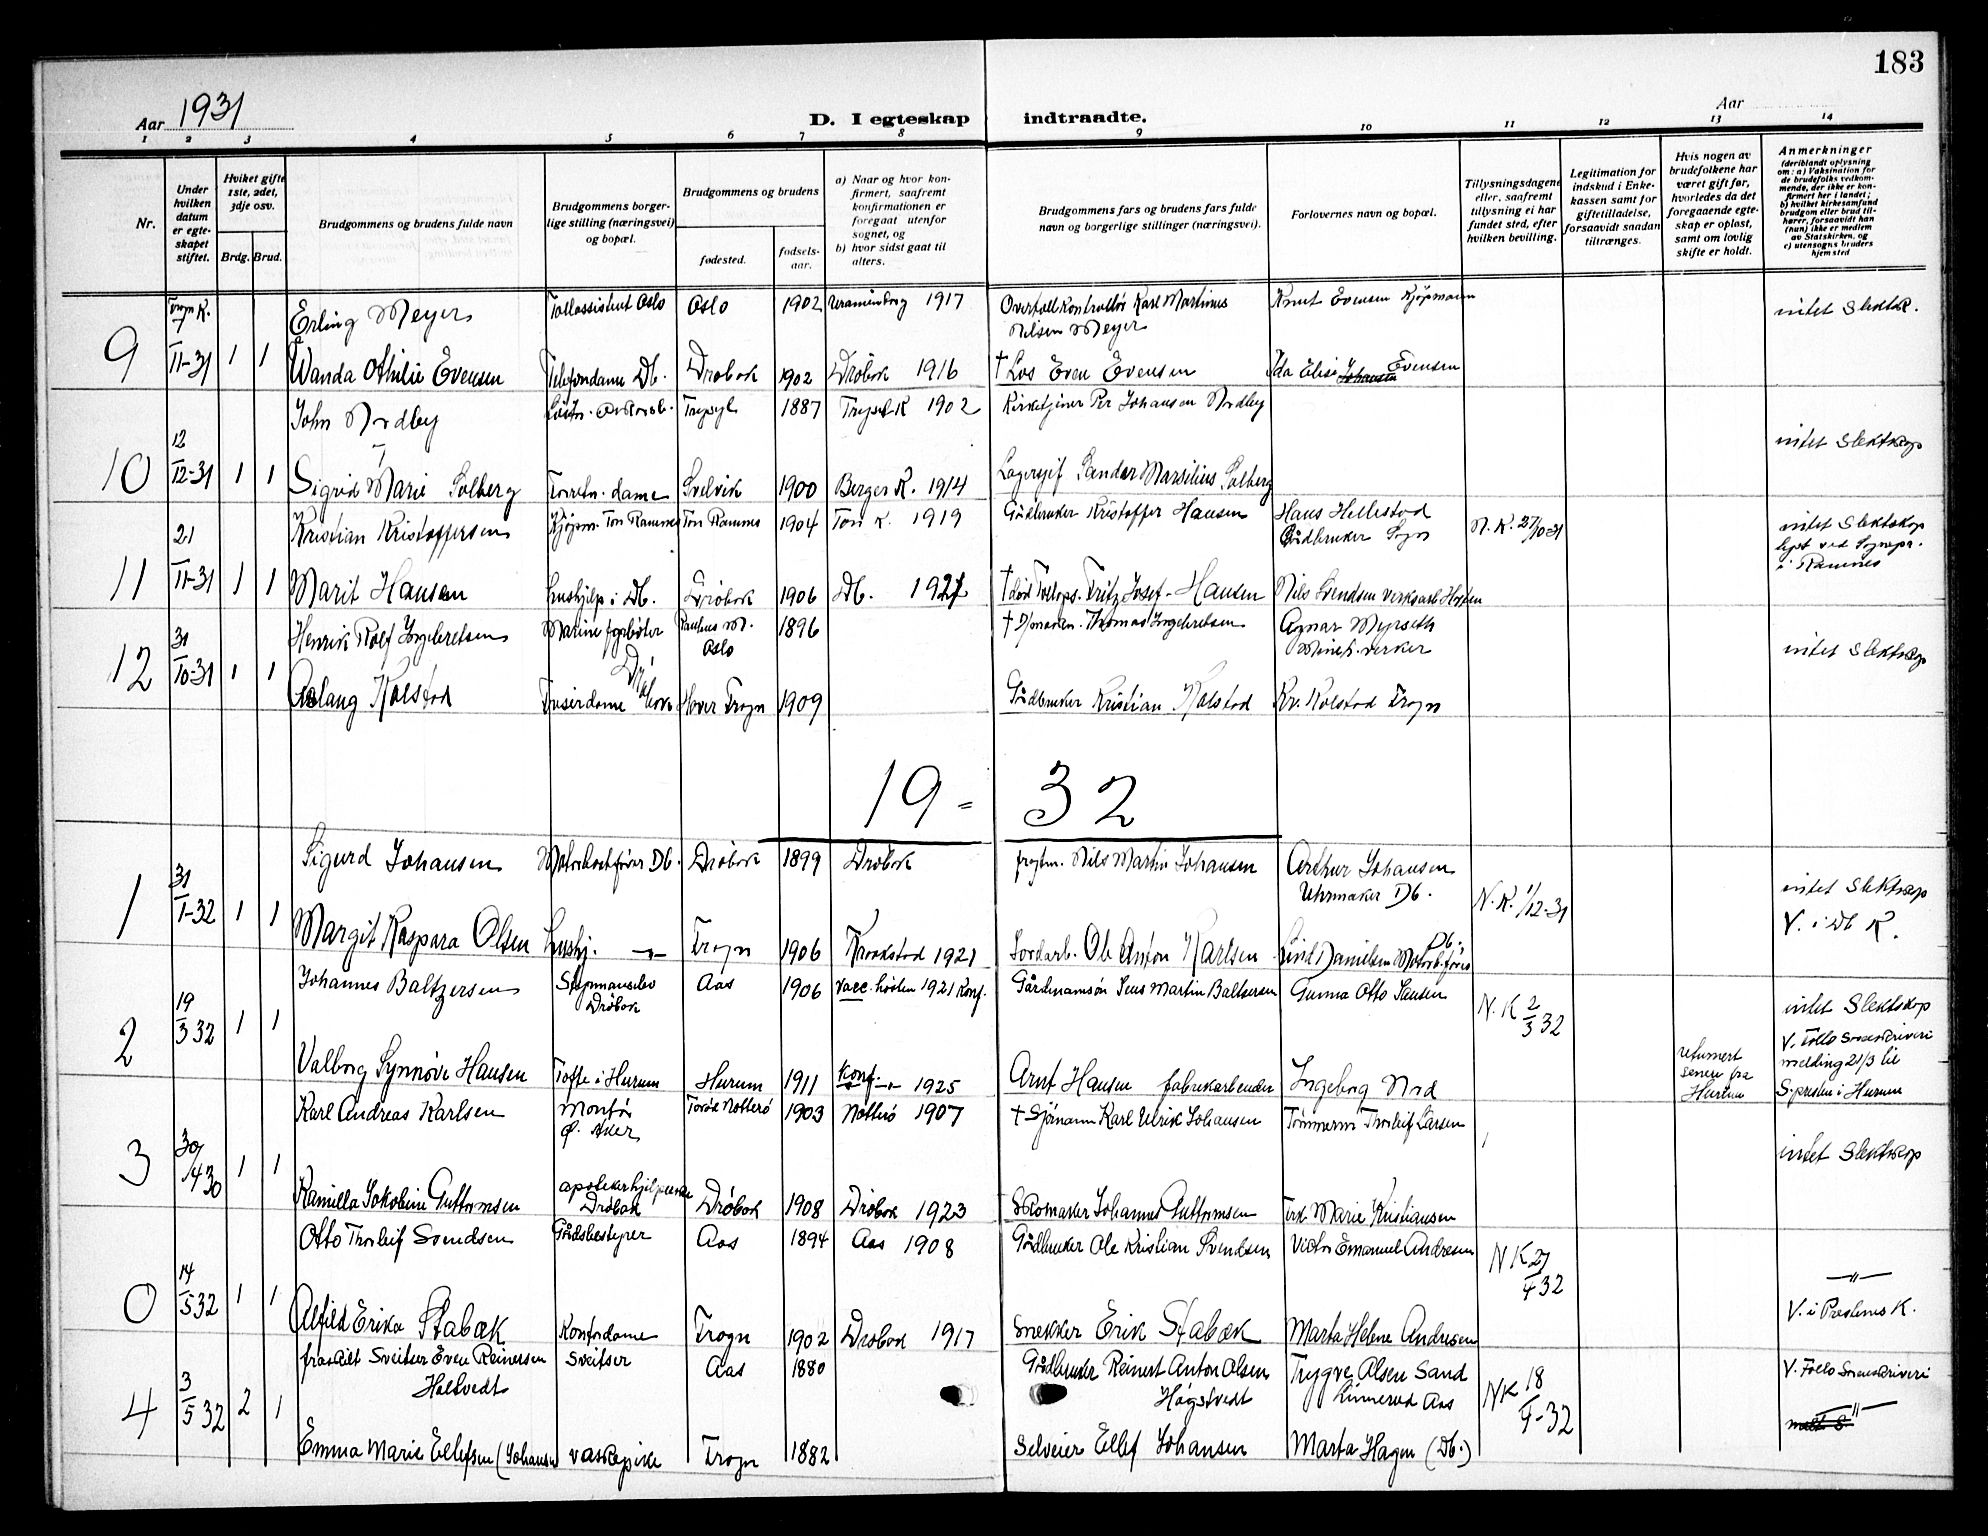 183
Aar 1931
D. I egteskap indtraadte.
Aar
1 2 3 4 5 6 7 8 9 10 11 12 13 14
Nr.
Under hvilken datum er egteskapet stiftet.
Hviket gifte 1ste, 2det, 3dje osv.
Brdg. Brud.
Brudgommens og brudens fulde navn
Brudgommens borgerlige stilling (næringsvei) og bopæl.
Brudgommens og brudens
fødested.
fødselsaar.
a) Naar og hvor konfirmert, saafremt konfirmationen er foregaat utenfor sognet, og
b) hvor sidst gaat til alters.
Brudgommens fars og brudens fars fulde navn og borgerlige stillinger (næringsvei).
Forlovernes navn og bopæl.
Tillysningsdagene eller, saafremt tillysning ei har fundet sted, efter hvilken bevilling.
Legitimation for indskud i Enkekassen samt for giftetilladelse, forsaavidt saadan tiltrænges.
Hvis nogen av brudefolkene har været gift før, hvorledes da det foregaaende egteskap er opløst, samt om lovlig skifte er holdt.
Anmerkninger
(deriblandt oplysning om: a) Vaksination for de brudefolks vedkommende, der ikke er konfirmert her i landet; b) hvilket kirkesamfund brudgom eller brud tilhører, forsaavidt han (hun) ikke er medlem av Statskirken, og c) utensogns bruders hjemsted
9 7/11-31 1 1 Erling Meyer Tollassistent Oslo Oslo 1902 1917 Overtollkontrollør Karl Martinus Nilsen Meyer Knut Evensen Kjøpmann intet Slektsk.
Wanda Othilie Evensen Telefondame Db. Drøbak 1902 Drøbak 1916 † Los Even Evensen Ida Elise Johansen Evensen
10 12/12-31 1 1 John Nordby Trysyl 1887 Trysil K 1902 Kirketjener Per Johansen Nordby intet Slektskap
Sigrid Marie Solberg Forretn. dame Svelvik 1900 Berger K. 1914 Lagersjef Sander Marsilius Solberg
11 21/11-31 1 1 Kristian Kristoffersen Kjøpm. Fon Ramnes Fon Ramnes 1904 Fon K. 1919 Gårdbruker Kristoffer Hansen Hans Hellestad Gårdbruker Sogn N.K. 27/10-31 intet Slektskap lyst ved Sognepr. i Ramnes
Marit Hansen hushjelp i Db. Drøbak 1906 Db. 1921 Fritz Josef Hansen Nils Svendsen verksarb Horten
12 31/10-31 1 1 Henrik Rolf Ingebretsen Oslo 1896 Thomas Ingebretsen Agnar Myrseth intet Slektskap
Aslaug Kolstad Friserdame Drøbak Hover Frogn 1909 Gårdbruker Kristian Kolstad Kr. Kolstad Frogn
19 - 32
1 31/1-32 1 1 Sigurd Johansen Motorbåtfører Db. Drøbak 1899 Drøbak Nils Martin Johansen Arthur Johansen Uhrmaker Db. N.K. 1/12-31 intet Slektskap V. i Db K.
Margit Kaspara Olsen hushj. -"- Frogn 1906 Kraakstad 1921 Jordarb. Ole Anton Karlsen Danielsen Motorb.fører Db.
2 19/3 32 1 1 Johannes Baltzersen Drøbak Aas 1906 vacc. høsten 1921 Konf. Jens Martin Baltzersen Gunna Otto Jansen N.K 2/3 32 intet Slektskap
Valborg Synnøve Hansen Tofte i Hurum Hurum 1911 Konf. -"- 1925 Arnt Hansen fabrikarbeider Ingeborg Nord returnert senere fra Hurum V. Follo Sorenskriveri melding 21/3 til S.presten i Hurum
3 30/4 30 1 1 Karl Andreas Karlsen Montør Ø. Aker Nøtterø 1903 Nøtterø 1907 † Sjømann Karl Ulrik Johansen Tømmerm Thorleif Larsen intet Slektskap
Kamilla Jakobine Guttormsen apotekerhjelperske Drøbak Drøbak 1908 Drøbak 1923 Skomaker Johannes Guttormsen Frk Marie Kristiansen
0 14/5 32 1 1 Otto Thorleif Svendsen Gårdsbestyrer Aas 1894 Aas 1908 Gårdbruker Ole Kristian Svendsen Victor Emanuel Andresen N K 27/4 32 -"- V. i Prestenes K.
Alfild Erika Stabæk Kontordame Frogn 1902 Drøbak 1917 Snekker Erik Stabæk Marta Helene Andresen
4 3/5 32 2 1 fraskilt Sveitser Even Reinertsen Holtvedt Sveitser Aas 1880 Gårdbruker Reinert Anton Olsen Høgstvedt Trygve Olsen Sand Kinnerud Aas NK 18/4-32 V. Follo Sorenskriveri -"-
Emma Marie Ellefsen (Johansen vaskepike Frogn 1882 Selveier Ellef Johansen Marta Hagen (Db.)